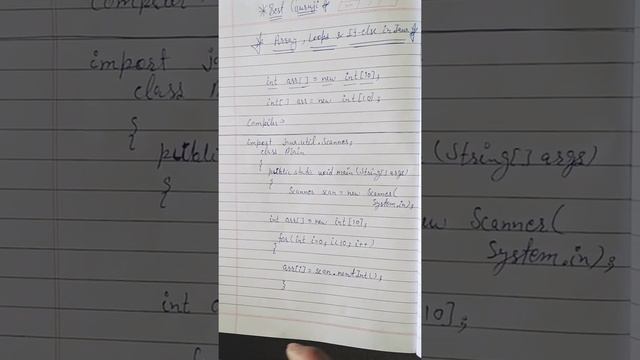 * Best Guruji
* Array, Loops & If-else in Java
int arr[] = new int[10];
int[] arr = new int[10];
Compiler →
import java.util.Scanner;
class Main
{
public static void main(String[] args)
{
Scanner scan = new Scanner(
System.in);
int arr[] = new int[10];
for(int i=0; i<10; i++)
{
arr[i] = scan.nextInt();
}